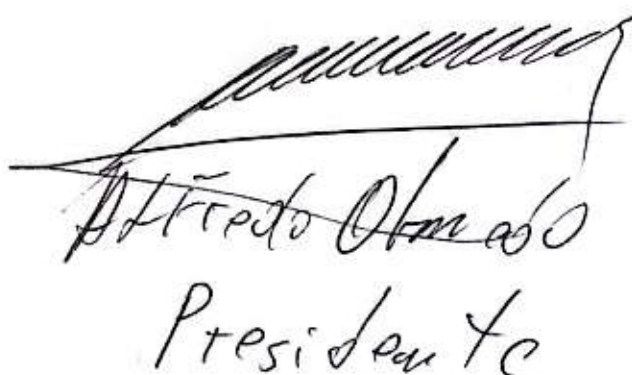 Alfredo Olmedo
Presidente